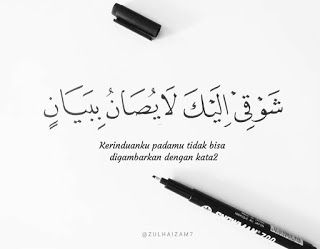 شَوْقِيْ اِلَيْكَ لَا يُصَانُ بِبَيَانٍ
Kerinduanku padamu tidak bisa
digambarkan dengan kata2
@ZULHAIZAM7